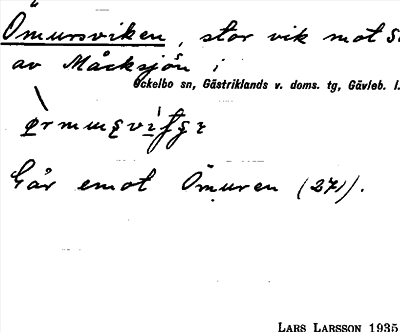 Ömursviken, stor vik mot S
av Måcksjön i
Ockelbo sn, Gästriklands v. doms. tg, Gävleb. l.
Går emot Ömuren (271).
LARS LARSSON 1935